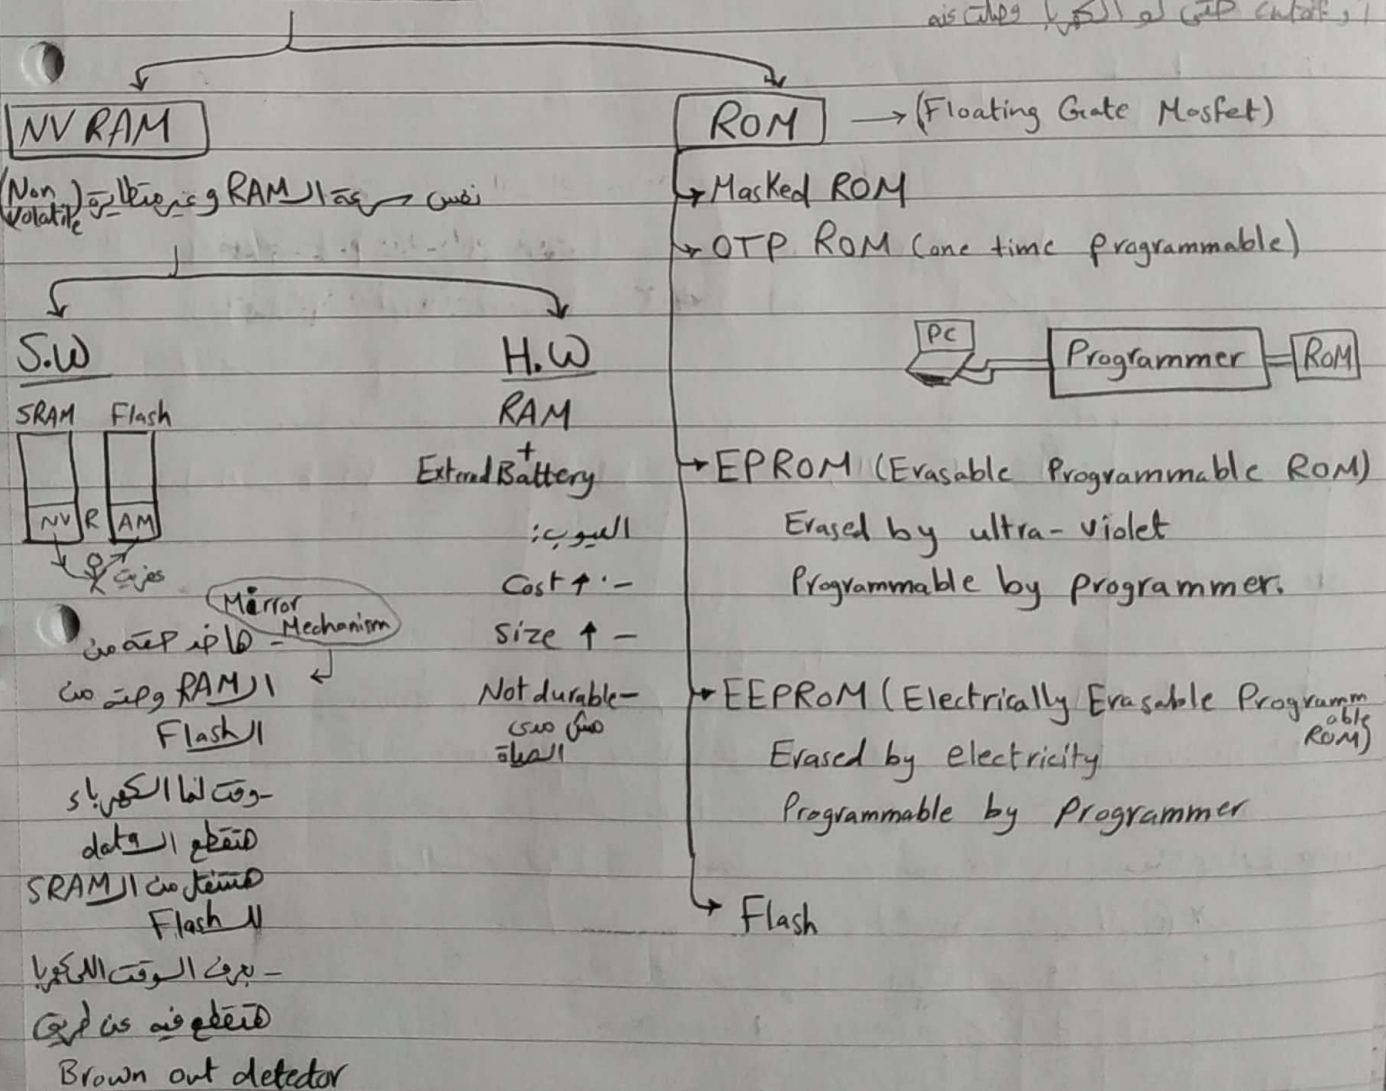 او cutoff حتى لو الكهربا وصلت
NV RAM
(Non Volatile) نفس سرعة الـ RAM و غير متطايرة
S.W
SRAM Flash
NV R AM
Mirror Mechanism
- هاخد حتة من
الـ RAM وحتة من
الـ Flash
- وقت لما الكهرباء
هتقطع الـ data
هتتنقل من الـ SRAM
للـ Flash
- بعرف الوقت اللى كهربا
هتقطع فيه عن طريق
Brown out detector
H.W
RAM
+
External Battery
العيوب:
- Cost ↑
- Size ↑
- Not durable
مش مدى
الحياة
ROM → (Floating Gate Mosfet)
Masked ROM
OTP ROM (one time programmable)
PC Programmer ROM
EPROM (Erasable Programmable ROM)
Erased by ultra-violet
Programmable by programmer.
EEPROM (Electrically Erasable Programmable ROM)
Erased by electricity
Programmable by Programmer
Flash